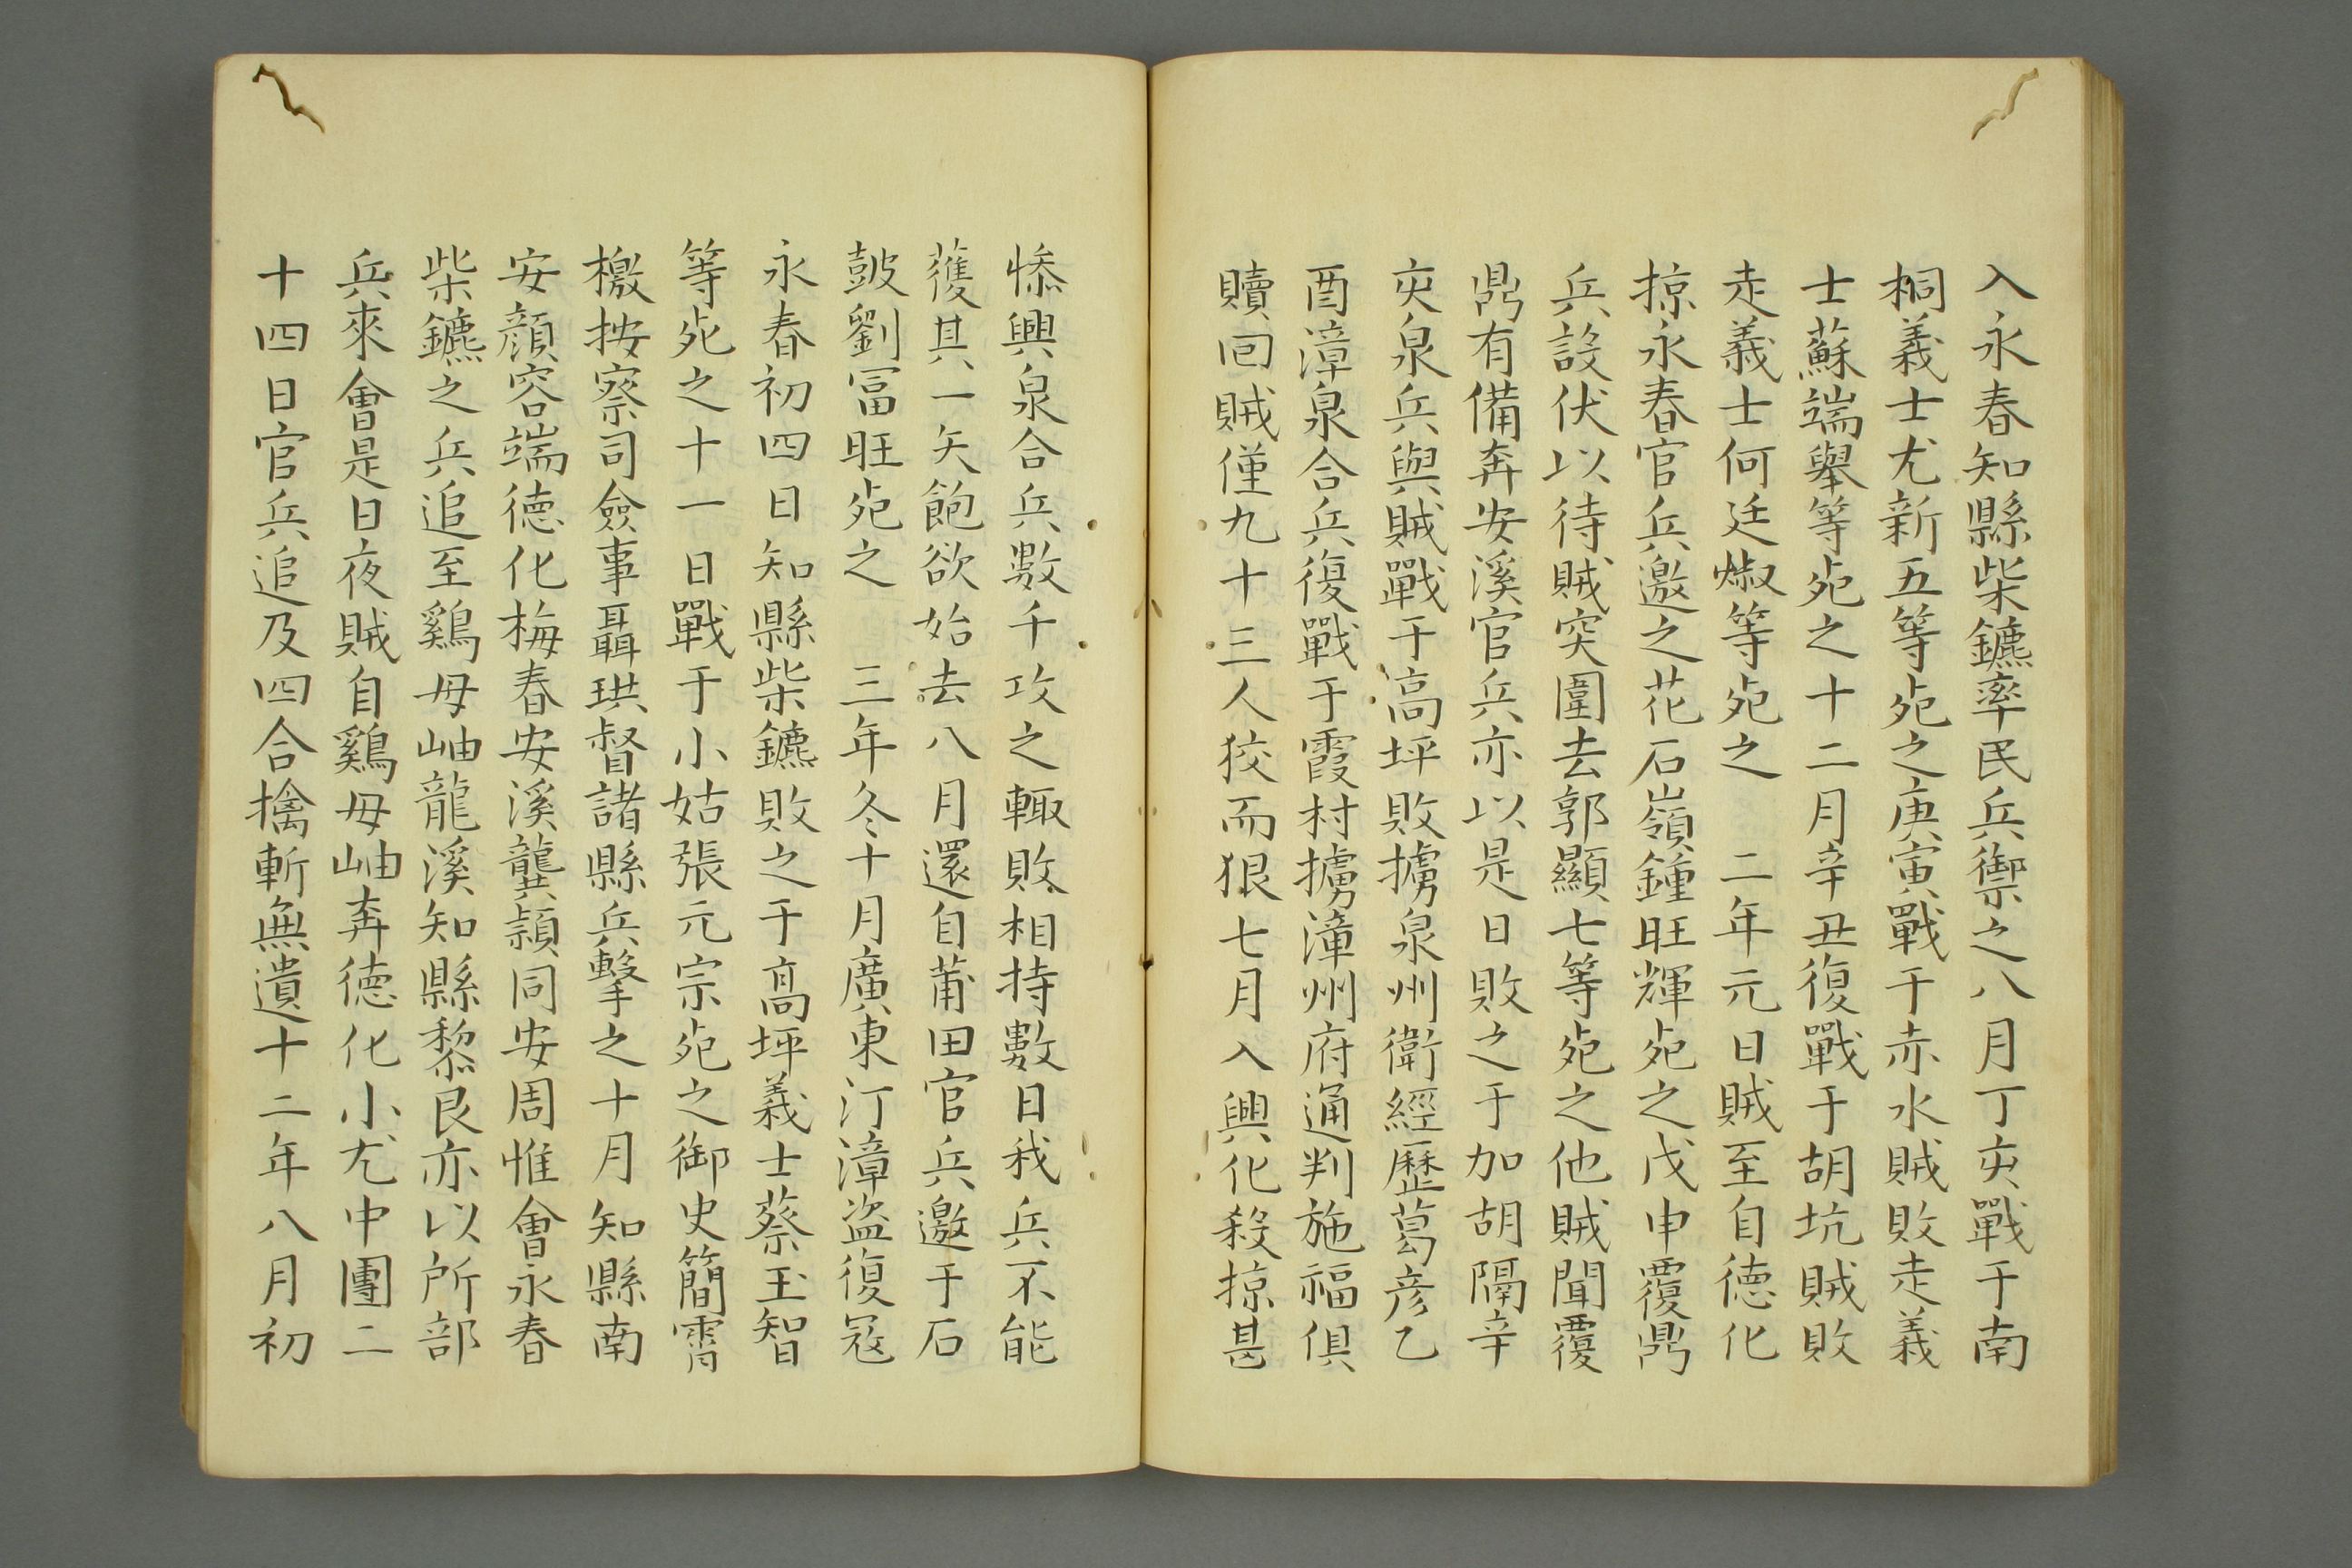 入永春知縣柴鑣率民兵禦之八月丁亥戰于南
桐義士尤新五等死之庚寅戰于赤水賊敗走義
士蘇端舉等死之十二月辛丑復戰于胡坑賊敗
走義士何廷椒等死之　二年元日賊至自德化
掠永春官兵邀之花石嶺鍾旺輝死之戊申覆鼎
兵設伏以待賊突圍去郭顯七等死之他賊聞覆
鼎有備奔安溪官兵亦以是日敗之于加胡隔辛
亥泉兵與賊戰于高坪敗擄泉州衛經歷葛彥乙
酉漳泉合兵復戰于霞村擄漳州府通判施福俱
贖回賊僅九十三人狡而狠七月入興化殺掠甚
慘興泉合兵數千攻之輙敗相持數日我兵不能
獲其一矢飽欲始去八月還自莆田官兵邀于石
皷劉冨旺死之　三年冬十月廣東汀漳盗復冦
永春初四日知縣柴鑣敗之于高坪義士蔡玉智
等死之十一日戰于小姑張元宗死之御史簡霄
檄按察司僉事聶珙督諸縣兵擊之十月知縣南
安顔容端德化梅春安溪龔穎同安周惟會永春
柴鑣之兵追至鷄母岫龍溪知縣黎艮亦以所部
兵來會是日夜賊自鷄母岫奔德化小尤中團二
十四日官兵追及四合擒斬無遺十二年八月初